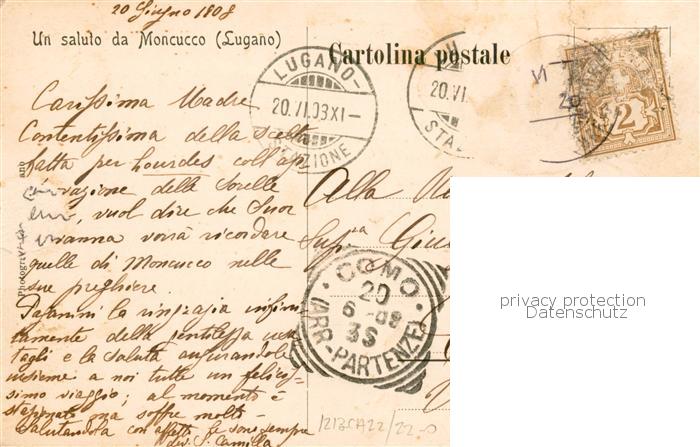 20 Giugno 1908
Un saluto da Moncucco (Lugano)
Cartolina postale
LUGANO
20.VI.08 XI-
STAZIONE
20.VI.
STAZ
2
Carissima Madre
Contentissima della scelta
fatta per Lourdes coll'ap
provazione delle Sorelle
vuol dire che Suor
vanna vorrà ricordare
quelle di Moncucco nelle
sue preghiere.
la ringrazia infini
tamente della gentilezza
tagli e la saluta augurandole
insieme a noi tutte un felicis
simo viaggio; al momento è
ma soffre molto -
salutandola con affetto le sono sempre
dev. S. Camilla
Alla
Sup.ra
COMO
20
6-08
3S
(ARR-PARTENZE)
privacy protection
Datenschutz